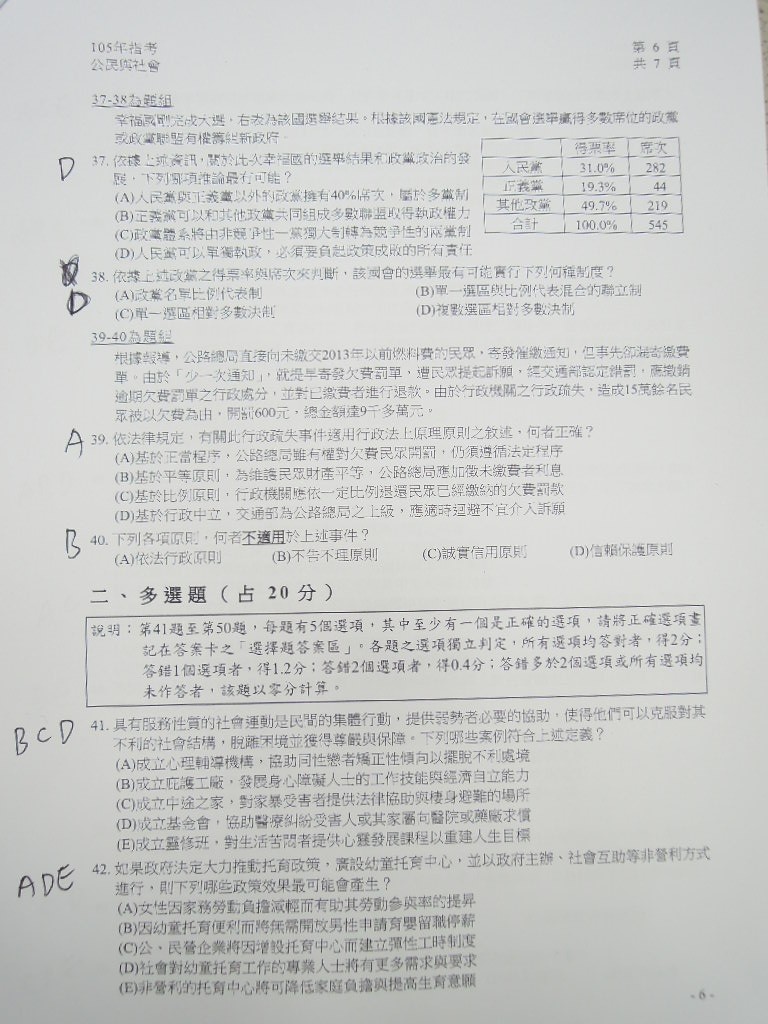 105年指考
公民與社會
第 6 頁
共 7 頁
37-38為題組
幸福國剛完成大選，右表為該國選舉結果。根據該國憲法規定，在國會選舉贏得多數席位的政黨
或政黨聯盟有權籌組新政府。
得票率 席次
人民黨 31.0% 282
正義黨 19.3% 44
其他政黨 49.7% 219
合計 100.0% 545
D
37. 依據上述資訊，關於此次幸福國的選舉結果和政黨政治的發
展，下列哪項推論最有可能？
(A)人民黨與正義黨以外的政黨擁有40%席次，屬於多黨制
(B)正義黨可以和其他政黨共同組成多數聯盟取得執政權力
(C)政黨體系將由非競爭性一黨獨大制轉為競爭性的兩黨制
(D)人民黨可以單獨執政，必須要負起政策成敗的所有責任
D
38. 依據上述政黨之得票率與席次來判斷，該國會的選舉最有可能實行下列何種制度？
(A)政黨名單比例代表制 (B)單一選區與比例代表混合的聯立制
(C)單一選區相對多數決制 (D)複數選區相對多數決制
39-40為題組
根據報導，公路總局直接向未繳交2013年以前燃料費的民眾，寄發催繳通知，但事先卻漏寄繳費
單。由於「少一次通知」，就提早寄發欠費罰單，遭民眾提起訴願，經交通部認定錯罰，應撤銷
逾期欠費罰單之行政處分，並對已繳費者進行退款。由於行政機關之行政疏失，造成15萬餘名民
眾被以欠費為由，開罰600元，總金額達9千多萬元。
A
39. 依法律規定，有關此行政疏失事件適用行政法上原理原則之敘述，何者正確？
(A)基於正當程序，公路總局雖有權對欠費民眾開罰，仍須遵循法定程序
(B)基於平等原則，為維護民眾財產平等，公路總局應加徵未繳費者利息
(C)基於比例原則，行政機關應依一定比例退還民眾已經繳納的欠費罰款
(D)基於行政中立，交通部為公路總局之上級，應適時迴避不宜介入訴願
B
40. 下列各項原則，何者不適用於上述事件？
(A)依法行政原則 (B)不告不理原則 (C)誠實信用原則 (D)信賴保護原則
二、多選題（占 20 分）
說明：第41題至第50題，每題有5個選項，其中至少有一個是正確的選項，請將正確選項畫
記在答案卡之「選擇題答案區」。各題之選項獨立判定，所有選項均答對者，得2分；
答錯1個選項者，得1.2分；答錯2個選項者，得0.4分；答錯多於2個選項或所有選項均
未作答者，該題以零分計算。
BCD
41. 具有服務性質的社會運動是民間的集體行動，提供弱勢者必要的協助，使得他們可以克服對其
不利的社會結構，脫離困境並獲得尊嚴與保障。下列哪些案例符合上述定義？
(A)成立心理輔導機構，協助同性戀者矯正性傾向以擺脫不利處境
(B)成立庇護工廠，發展身心障礙人士的工作技能與經濟自立能力
(C)成立中途之家，對家暴受害者提供法律協助與棲身避難的場所
(D)成立基金會，協助醫療糾紛受害人或其家屬向醫院或藥廠求償
(E)成立靈修班，對生活苦悶者提供心靈發展課程以重建人生目標
ADE
42. 如果政府決定大力推動托育政策，廣設幼童托育中心，並以政府主辦、社會互助等非營利方式
進行，則下列哪些政策效果最可能會產生？
(A)女性因家務勞動負擔減輕而有助其勞動參與率的提昇
(B)因幼童托育便利而將無需開放男性申請育嬰留職停薪
(C)公、民營企業將因增設托育中心而建立彈性工時制度
(D)社會對幼童托育工作的專業人士將有更多需求與要求
(E)非營利的托育中心將可降低家庭負擔與提高生育意願
- 6 -